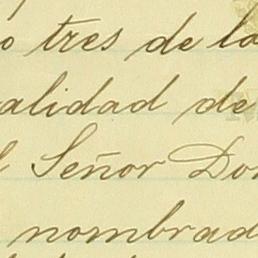 o tres de la
alidad de
l Señor Don
nombrad